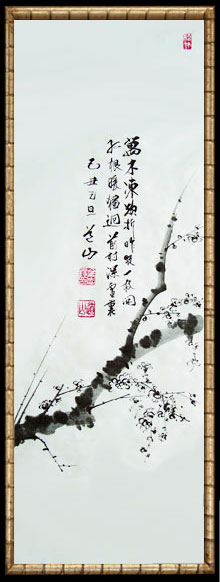 萬木凍欲折昨夜一枝開
孤根暖獨迴前村深雪裏
己丑元旦